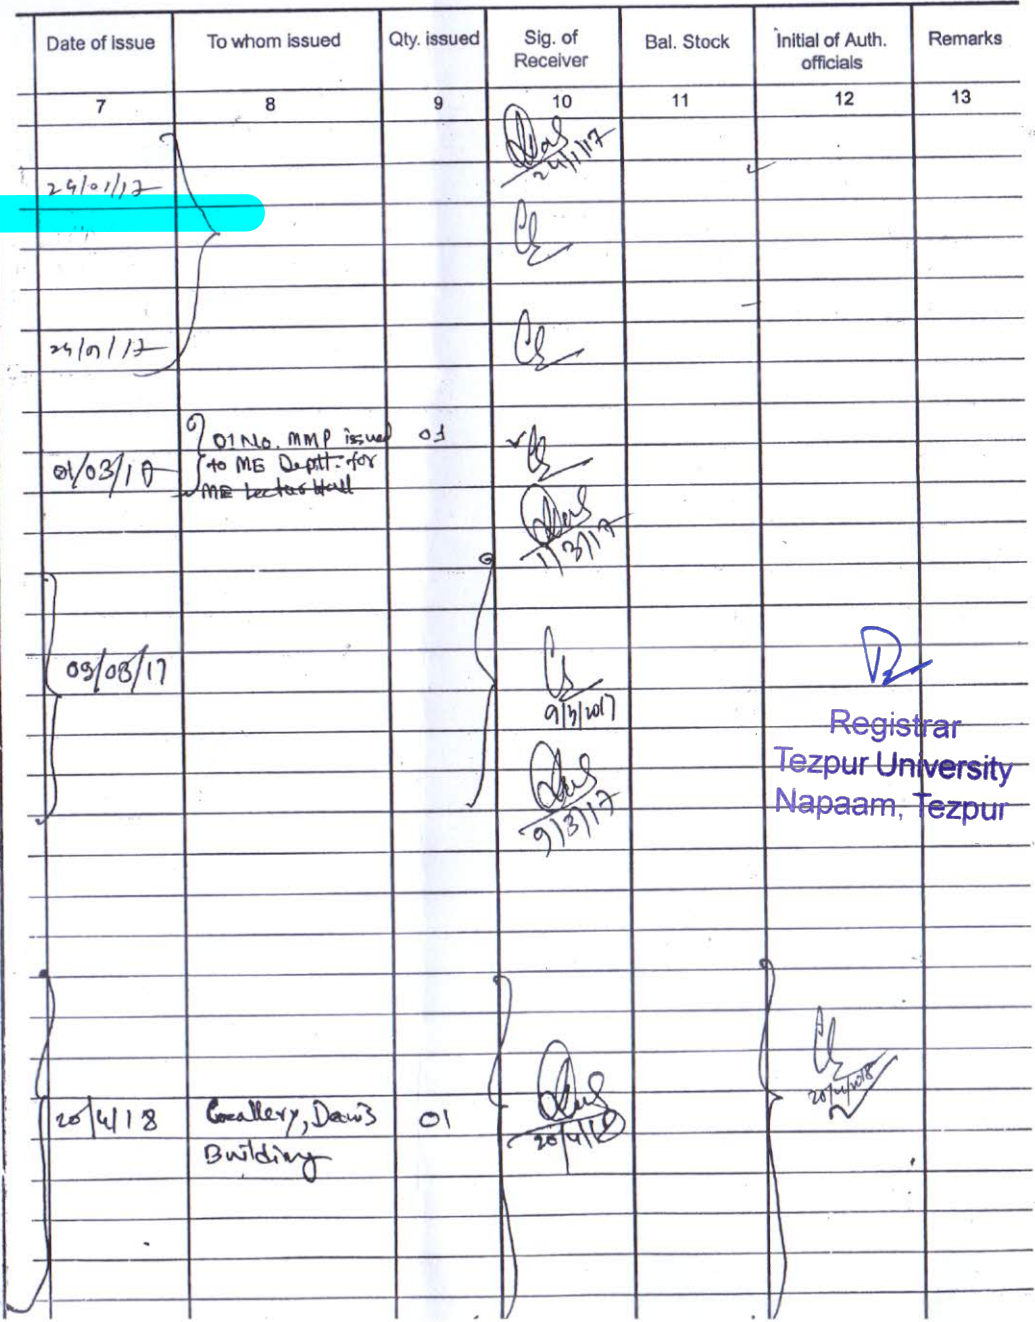 Date of issue To whom issued Qty. issued Sig. of Receiver Bal. Stock Initial of Auth. officials Remarks
7 8 9 10 11 12 13
24/1/17
24/01/17
24/01/17
01 No. MMP issued 01
01/03/17 to ME Deptt. for
ME Lecture Hall
1/3/17
09/03/17
9/3/2017
Registrar
Tezpur University
Napaam, Tezpur
9/3/17
20/4/2018
20/4/18 Gallery, Dean's 01
20/4/18
Building